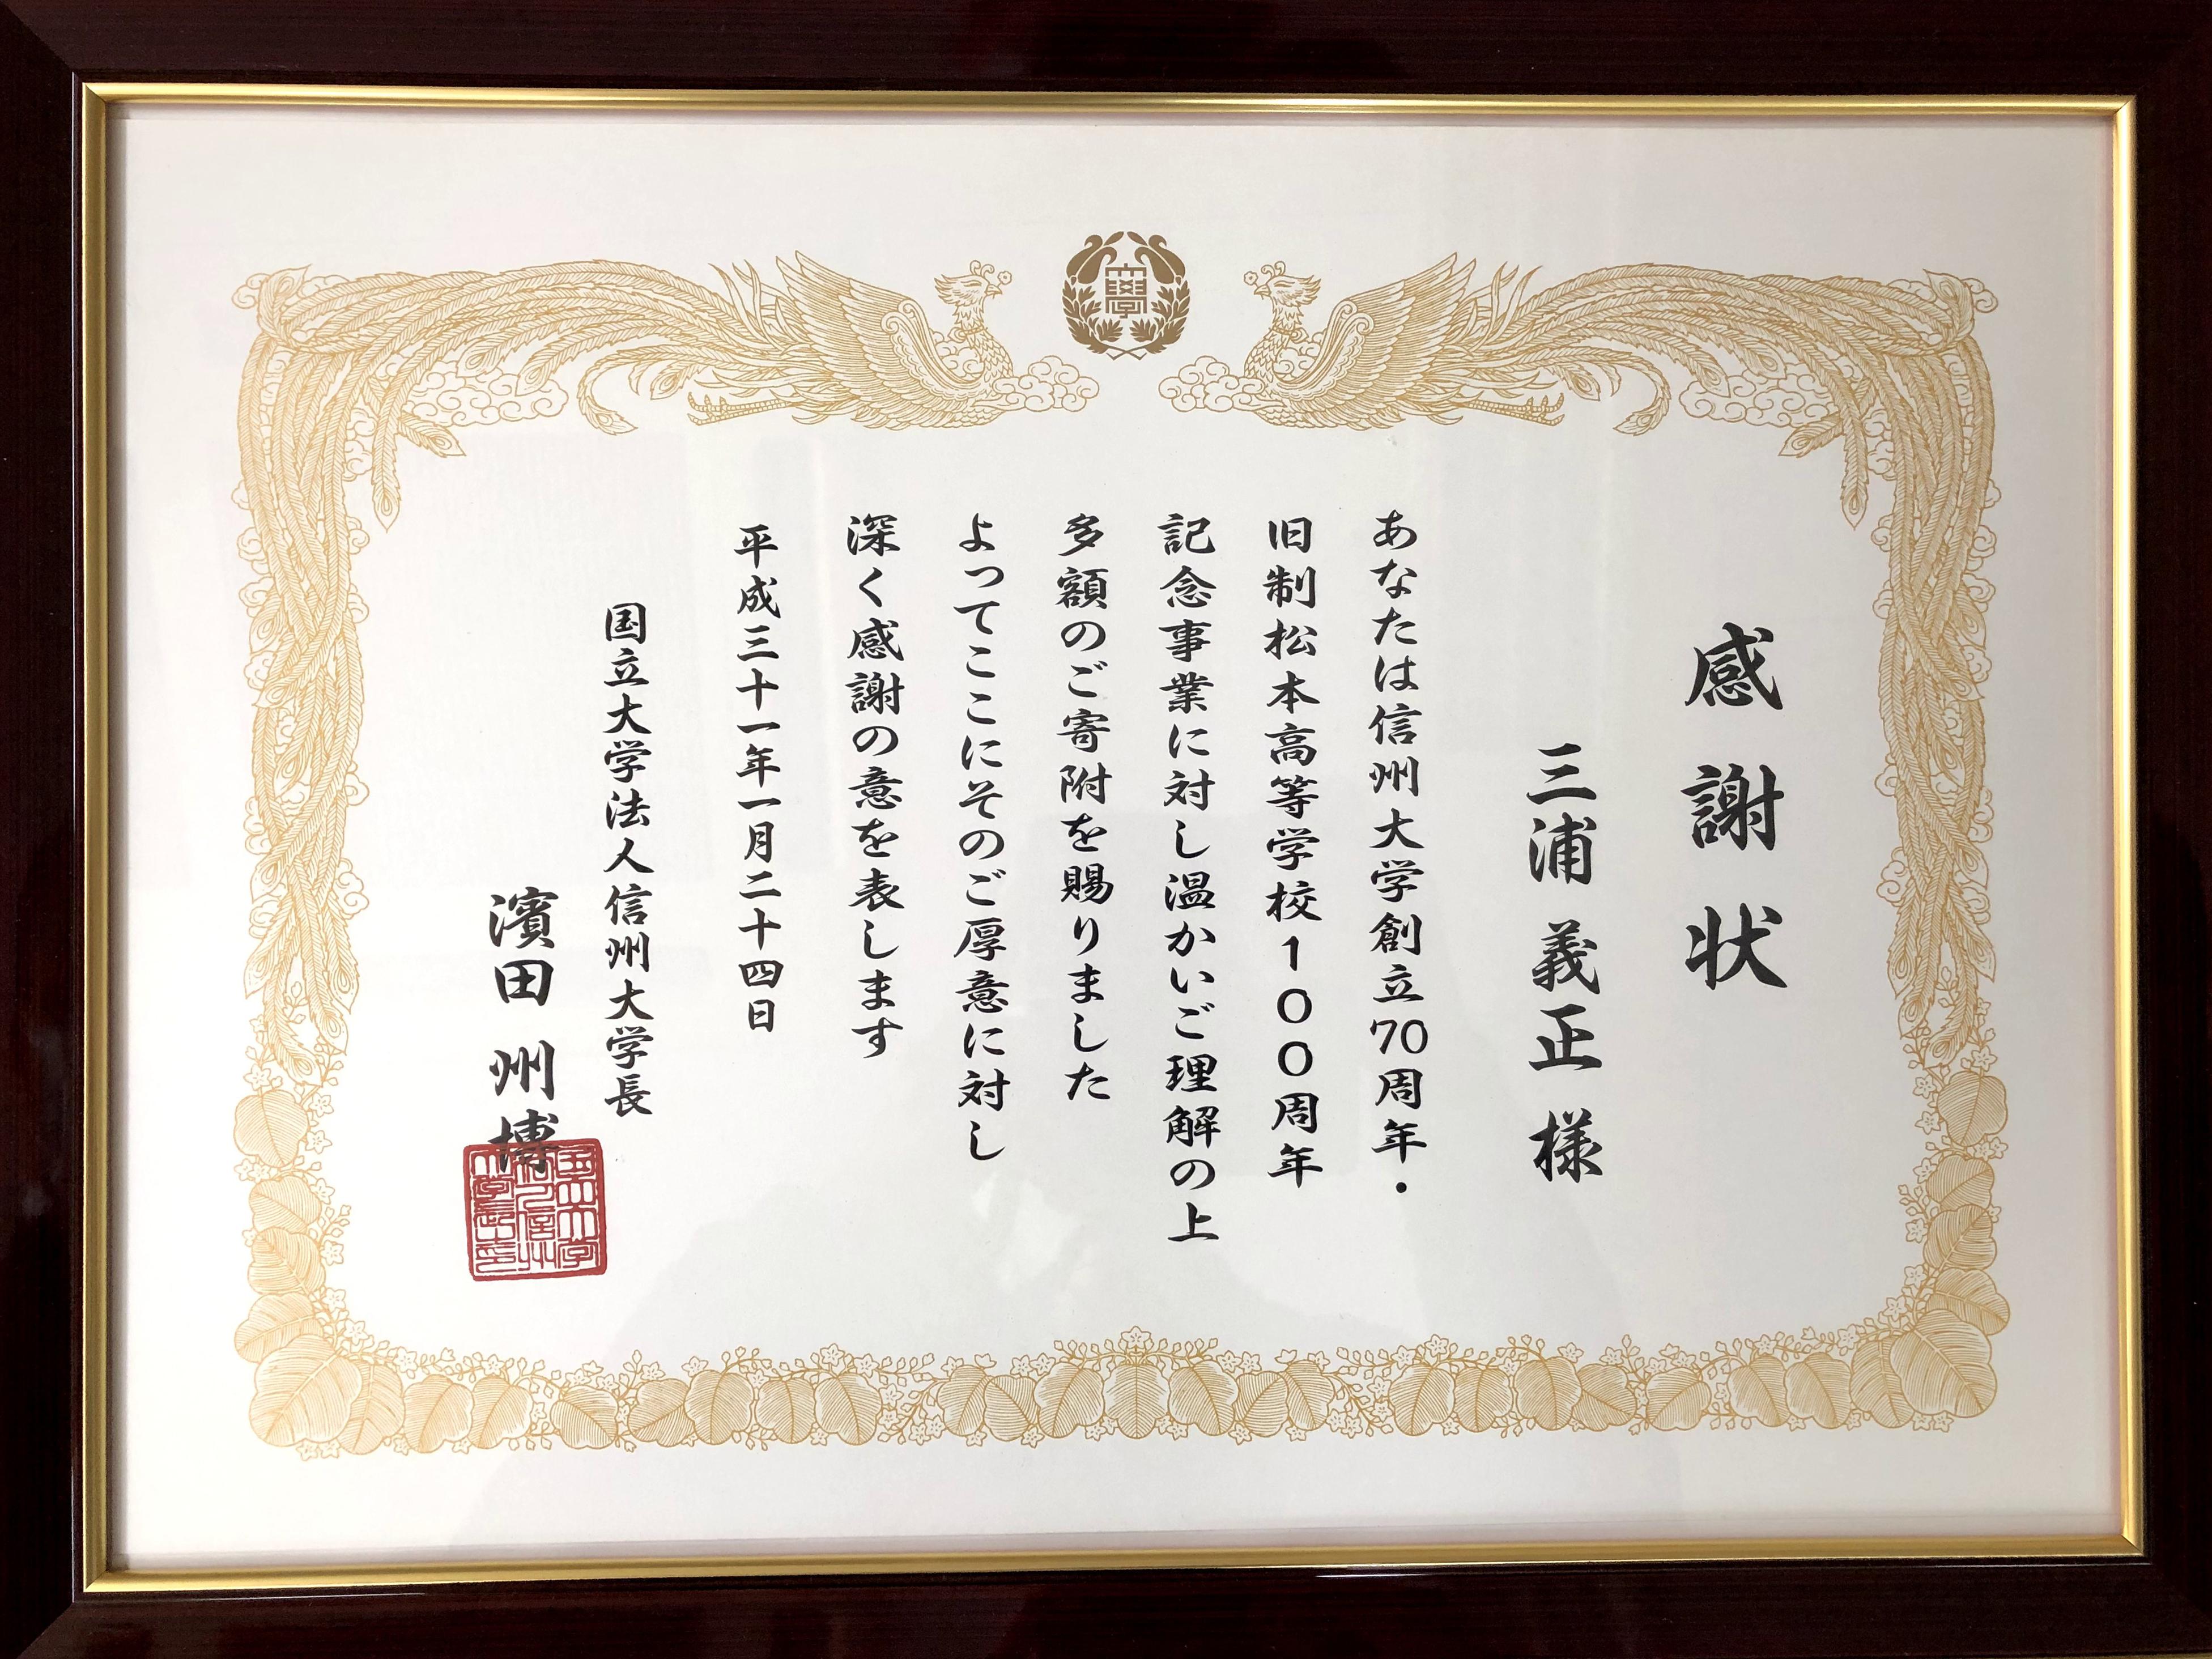 感謝状
三浦 義正 様
あなたは信州大学創立70周年・
旧制松本高等学校100周年
記念事業に対し温かいご理解の上
多額のご寄附を賜りました
よってここにそのご厚意に対し
深く感謝の意を表します
平成三十一年一月二十四日
国立大学法人信州大学長
濱田 州博
大學